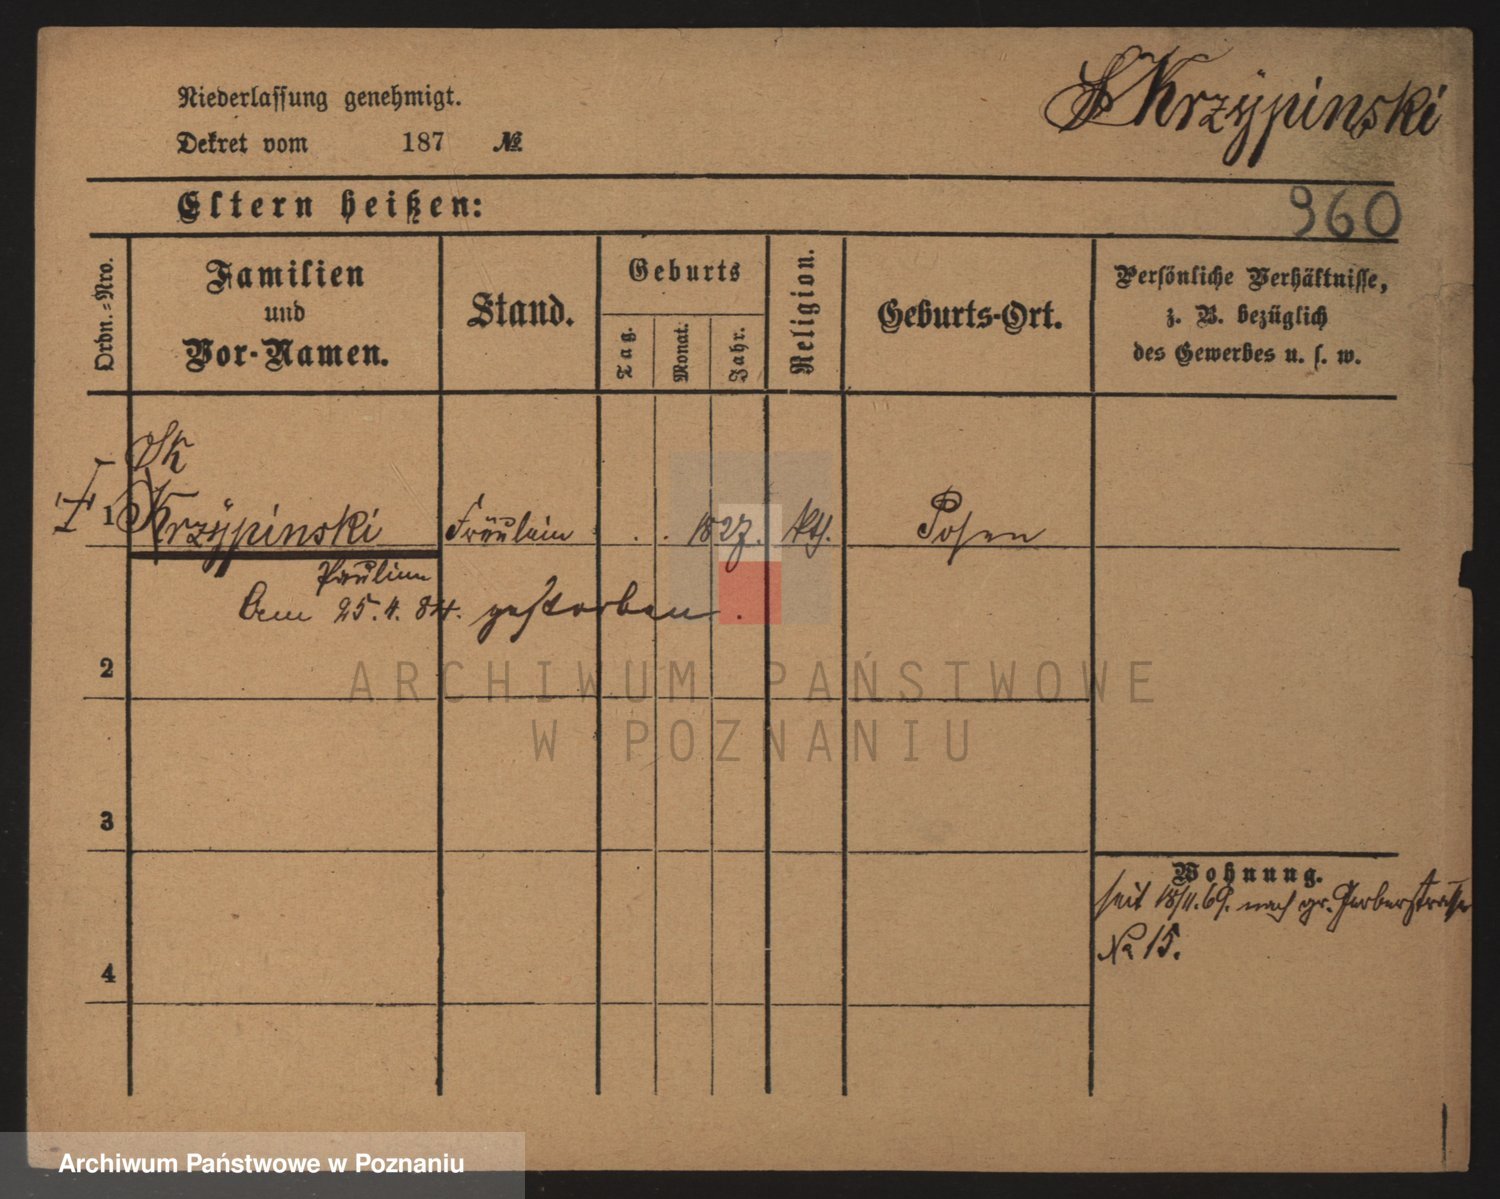 Skrzÿpinski
Niederlassung genehmigt.
Dekret vom 187 №
Eltern heißen:
960
Ordn.-Nro.
Familien
und
Vor-Namen.
Stand.
Geburts
Tag.
Monat.
Jahr.
Religion.
Geburts-Ort.
Persönliche Verhältnisse,
z. B. bezüglich
des Gewerbes u. s. w.
Sk
1 Krzÿpinski Fräulein . . 1827. kth. Posen
Pauline
Dem 25.4.84. gestorben.
2
ARCHIWUM PAŃSTWOWE
W POZNANIU
3
Wohnung.
seit 18/11.69. nach gr. Gerberstraße
№ 15.
4
Archiwum Państwowe w Poznaniu